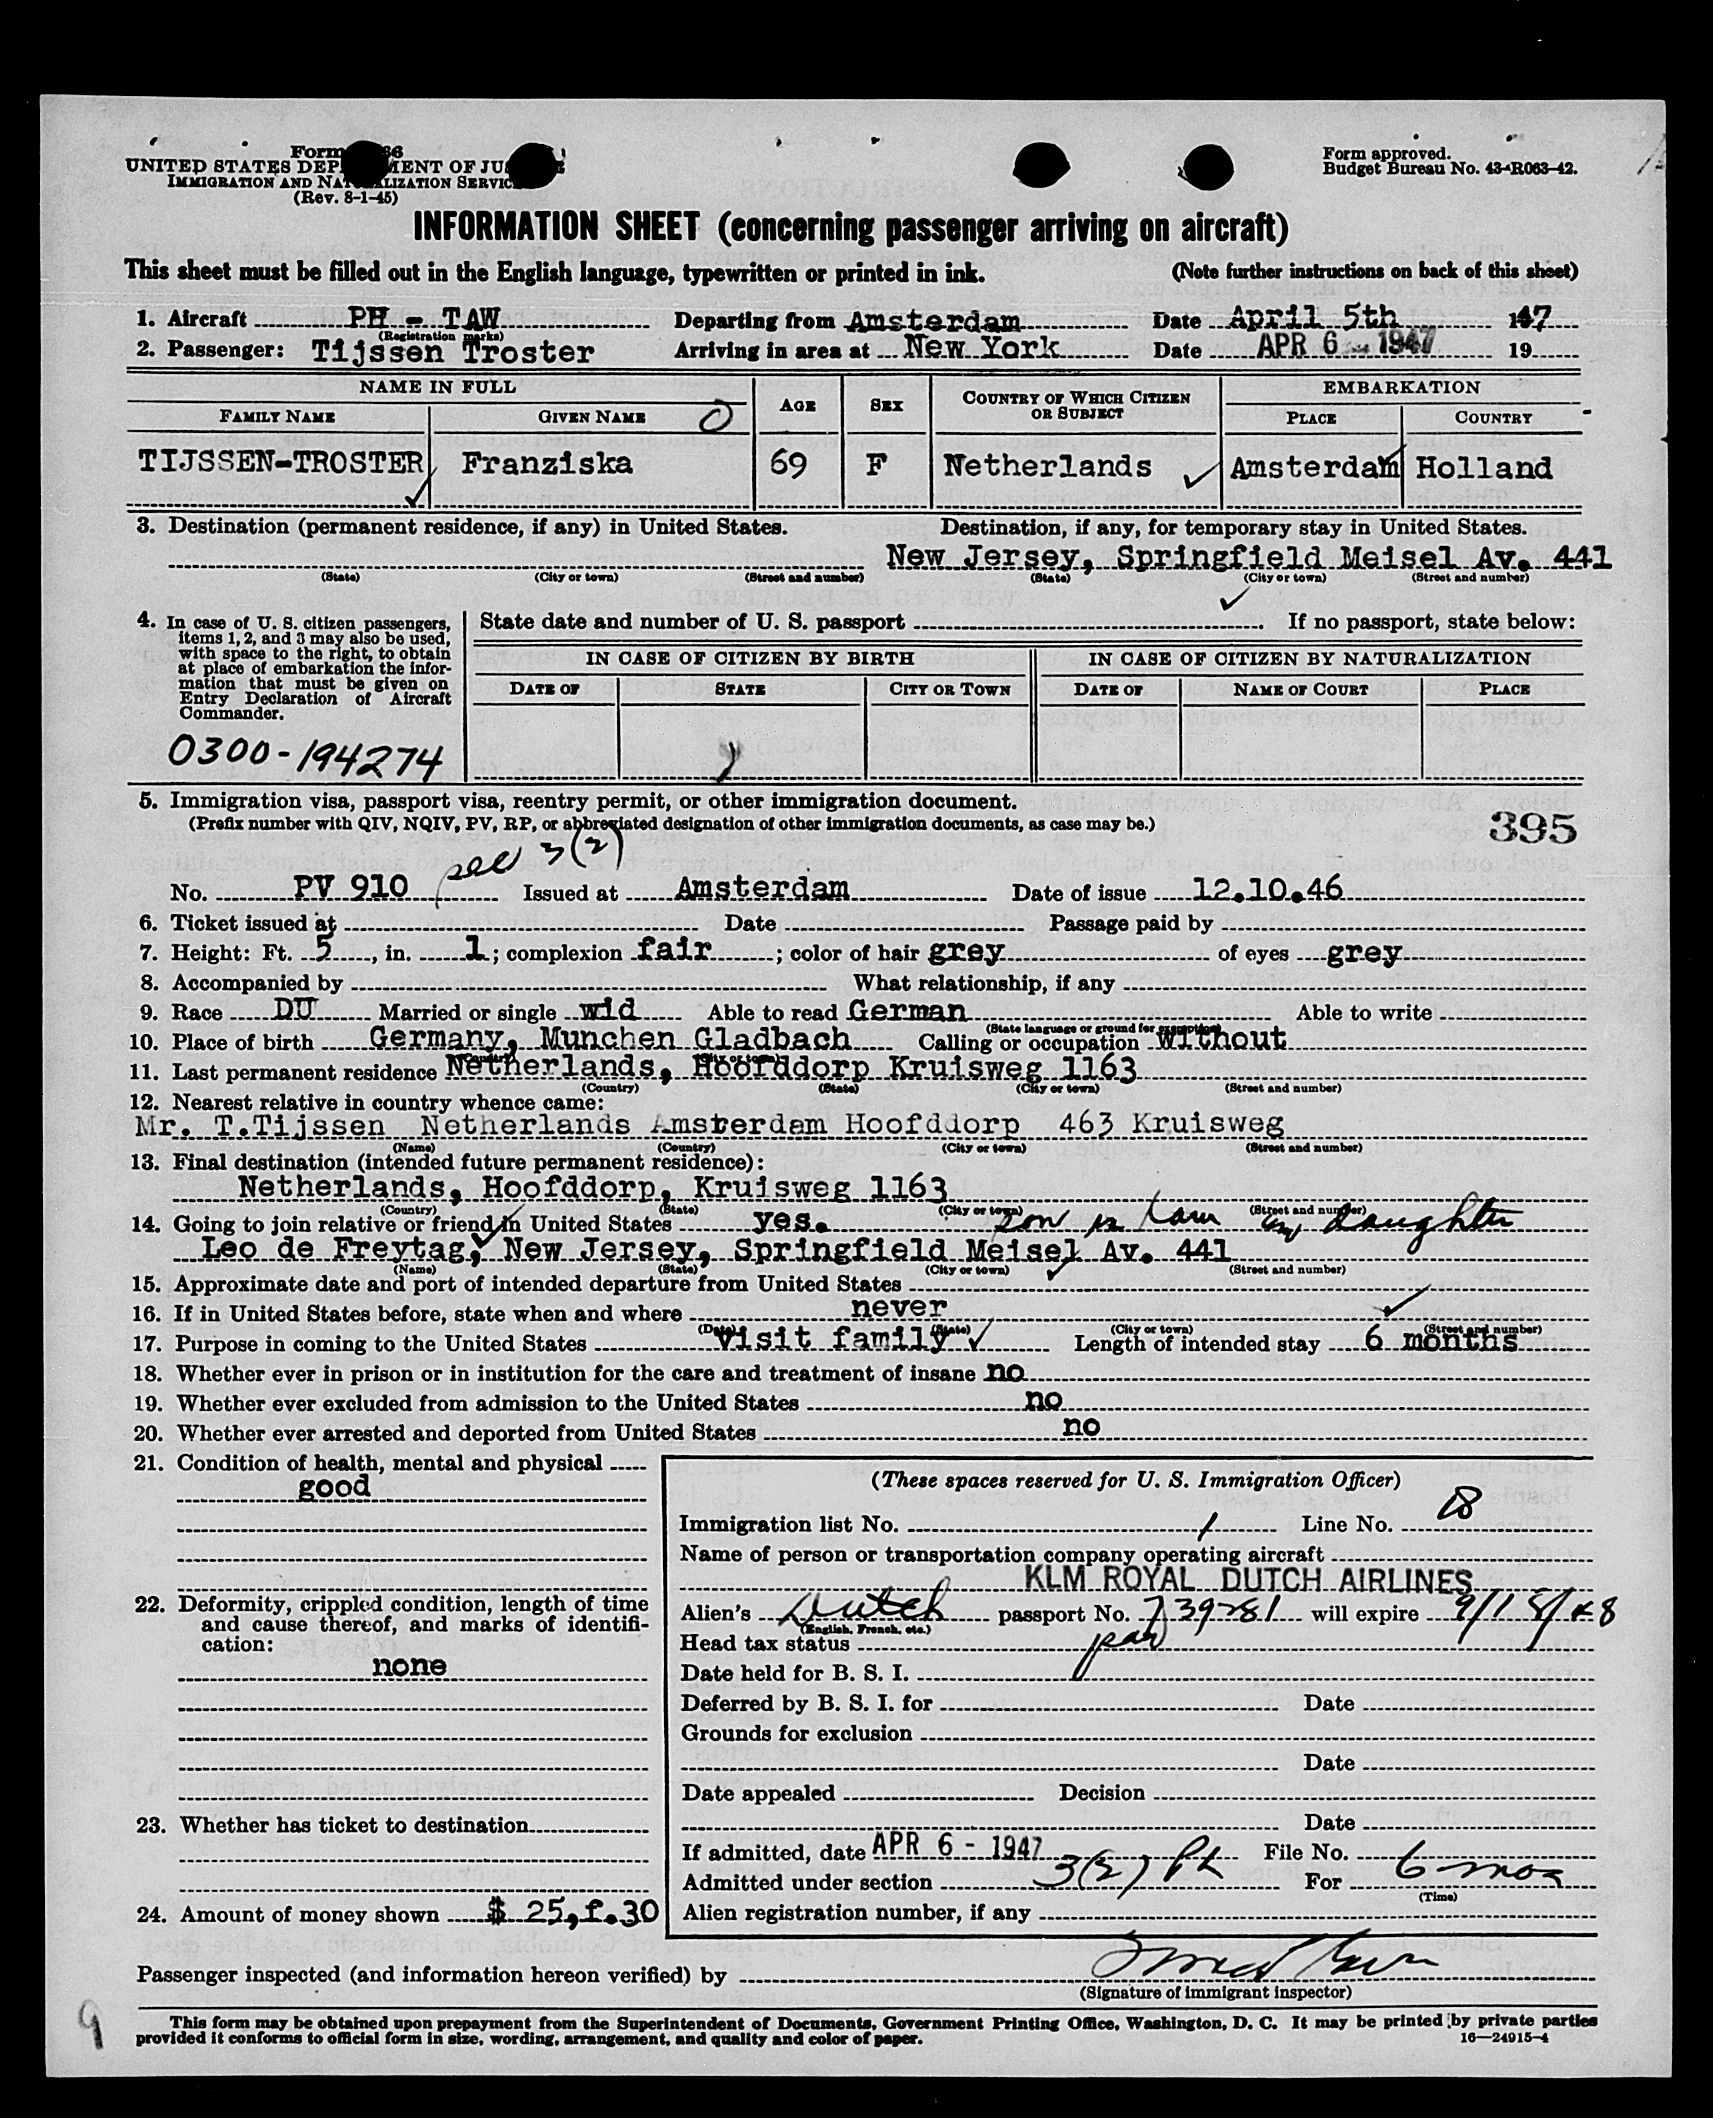 Form 66
UNITED STATES DEP MENT OF JU
IMMIGRATION AND NAT LIZATION SERVIC
(Rev. 8-1-45)
Form approved.
Budget Bureau No. 43-R063-42.
INFORMATION SHEET (concerning passenger arriving on aircraft)
This sheet must be filled out in the English language, typewritten or printed in ink. (Note further instructions on back of this sheet)
1. Aircraft PH - TAW Departing from Amsterdam Date April 5th 1947
(Registration marks)
2. Passenger: Tijssen Troster Arriving in area at New York Date APR 6 - 1947 19
NAME IN FULL AGE SEX COUNTRY OF WHICH CITIZEN OR SUBJECT EMBARKATION
FAMILY NAME GIVEN NAME PLACE COUNTRY
TIJSSEN-TROSTER Franziska 69 F Netherlands Amsterdam Holland
3. Destination (permanent residence, if any) in United States. Destination, if any, for temporary stay in United States.
New Jersey, Springfield Meisel Av. 441
(State) (City or town) (Street and number) (State) (City or town) (Street and number)
4. In case of U. S. citizen passengers,
items 1, 2, and 3 may also be used,
with space to the right, to obtain
at place of embarkation the infor-
mation that must be given on
Entry Declaration of Aircraft
Commander.
0300-194274
State date and number of U. S. passport If no passport, state below:
IN CASE OF CITIZEN BY BIRTH IN CASE OF CITIZEN BY NATURALIZATION
DATE OF STATE CITY OR TOWN DATE OF NAME OF COURT PLACE
5. Immigration visa, passport visa, reentry permit, or other immigration document.
(Prefix number with QIV, NQIV, PV, RP, or abbreviated designation of other immigration documents, as case may be.)
395
sec 3(2)
No. PV 910 Issued at Amsterdam Date of issue 12.10.46
6. Ticket issued at Date Passage paid by
7. Height: Ft. 5, in. 1; complexion fair; color of hair grey of eyes grey
8. Accompanied by What relationship, if any
9. Race DU Married or single wid Able to read German Able to write
(State language or ground for exemption)
10. Place of birth Germany, Munchen Gladbach Calling or occupation without
(Country) (City or town)
11. Last permanent residence Netherlands, Hoofddorp Kruisweg 1163
(Country) (State) (City or town) (Street and number)
12. Nearest relative in country whence came:
Mr. T.Tijssen Netherlands Amsterdam Hoofddorp 463 Kruisweg
(Name) (Country) (City or town) (Street and number)
13. Final destination (intended future permanent residence):
Netherlands, Hoofddorp, Kruisweg 1163
(Country) (State) (City or town) (Street and number)
14. Going to join relative or friend in United States yes. son in law daughter
Leo de Freytag, New Jersey, Springfield Meisel Av. 441
(Name) (State) (City or town) (Street and number)
15. Approximate date and port of intended departure from United States
16. If in United States before, state when and where never
(Date) (State) (City or town) (Street and number)
17. Purpose in coming to the United States visit family Length of intended stay 6 months
18. Whether ever in prison or in institution for the care and treatment of insane no
19. Whether ever excluded from admission to the United States no
20. Whether ever arrested and deported from United States no
21. Condition of health, mental and physical
good
22. Deformity, crippled condition, length of time
and cause thereof, and marks of identifi-
cation:
none
23. Whether has ticket to destination
24. Amount of money shown $ 25,f.30
(These spaces reserved for U. S. Immigration Officer)
Immigration list No. 1 Line No. 18
Name of person or transportation company operating aircraft
KLM ROYAL DUTCH AIRLINES
Alien's Dutch passport No. will expire 9/18/48
(English, French, etc.)
Head tax status
Date held for B. S. I.
Deferred by B. S. I. for Date
Grounds for exclusion
Date
Date appealed Decision
Date
If admitted, date APR 6 - 1947 File No.
Admitted under section 3(2) For 6 mos
(Time)
Alien registration number, if any
Passenger inspected (and information hereon verified) by
(Signature of immigrant inspector)
9
This form may be obtained upon prepayment from the Superintendent of Documents, Government Printing Office, Washington, D. C. It may be printed by private parties
provided it conforms to official form in size, wording, arrangement, and quality and color of paper. 16—24915-4